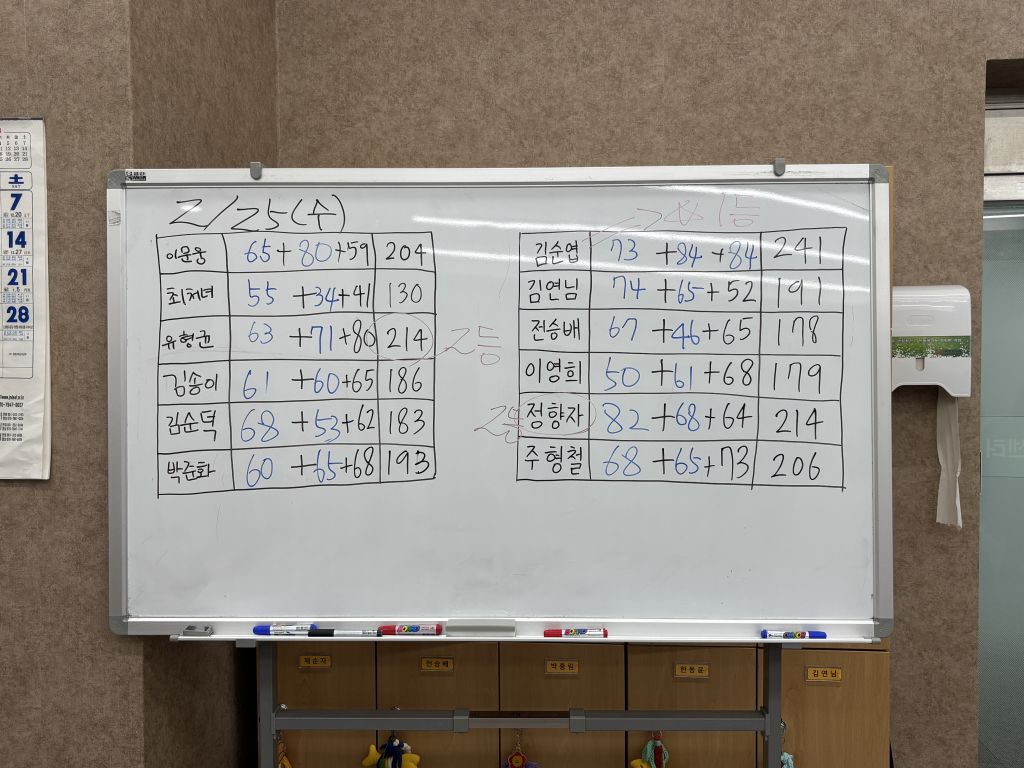 2/25(수)
이문웅 65+80+59 204
55+34+41 130
유형균 63+71+80 214 2등
김송이 61+60+65 186
김순덕 68+53+62 183
박준화 60+65+68 193
1등
김순엽 73+84+84 241
김연님 74+65+52 191
전승배 67+46+65 178
이영희 50+61+68 179
2등 정향자 82+68+64 214
주형철 68+65+73 206
土
7
14
21
28
전승배
김연님